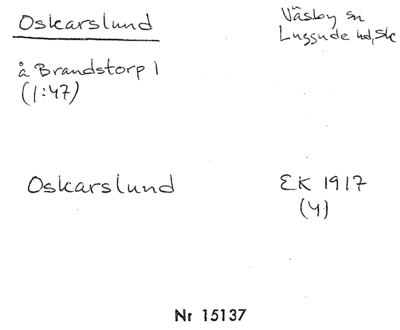 Oskarslund
Väsby sn
Luggude hd, Sk
å Brandstorp 1
(1:47)
Oskarslund
EK 1917
(4)
Nr 15137